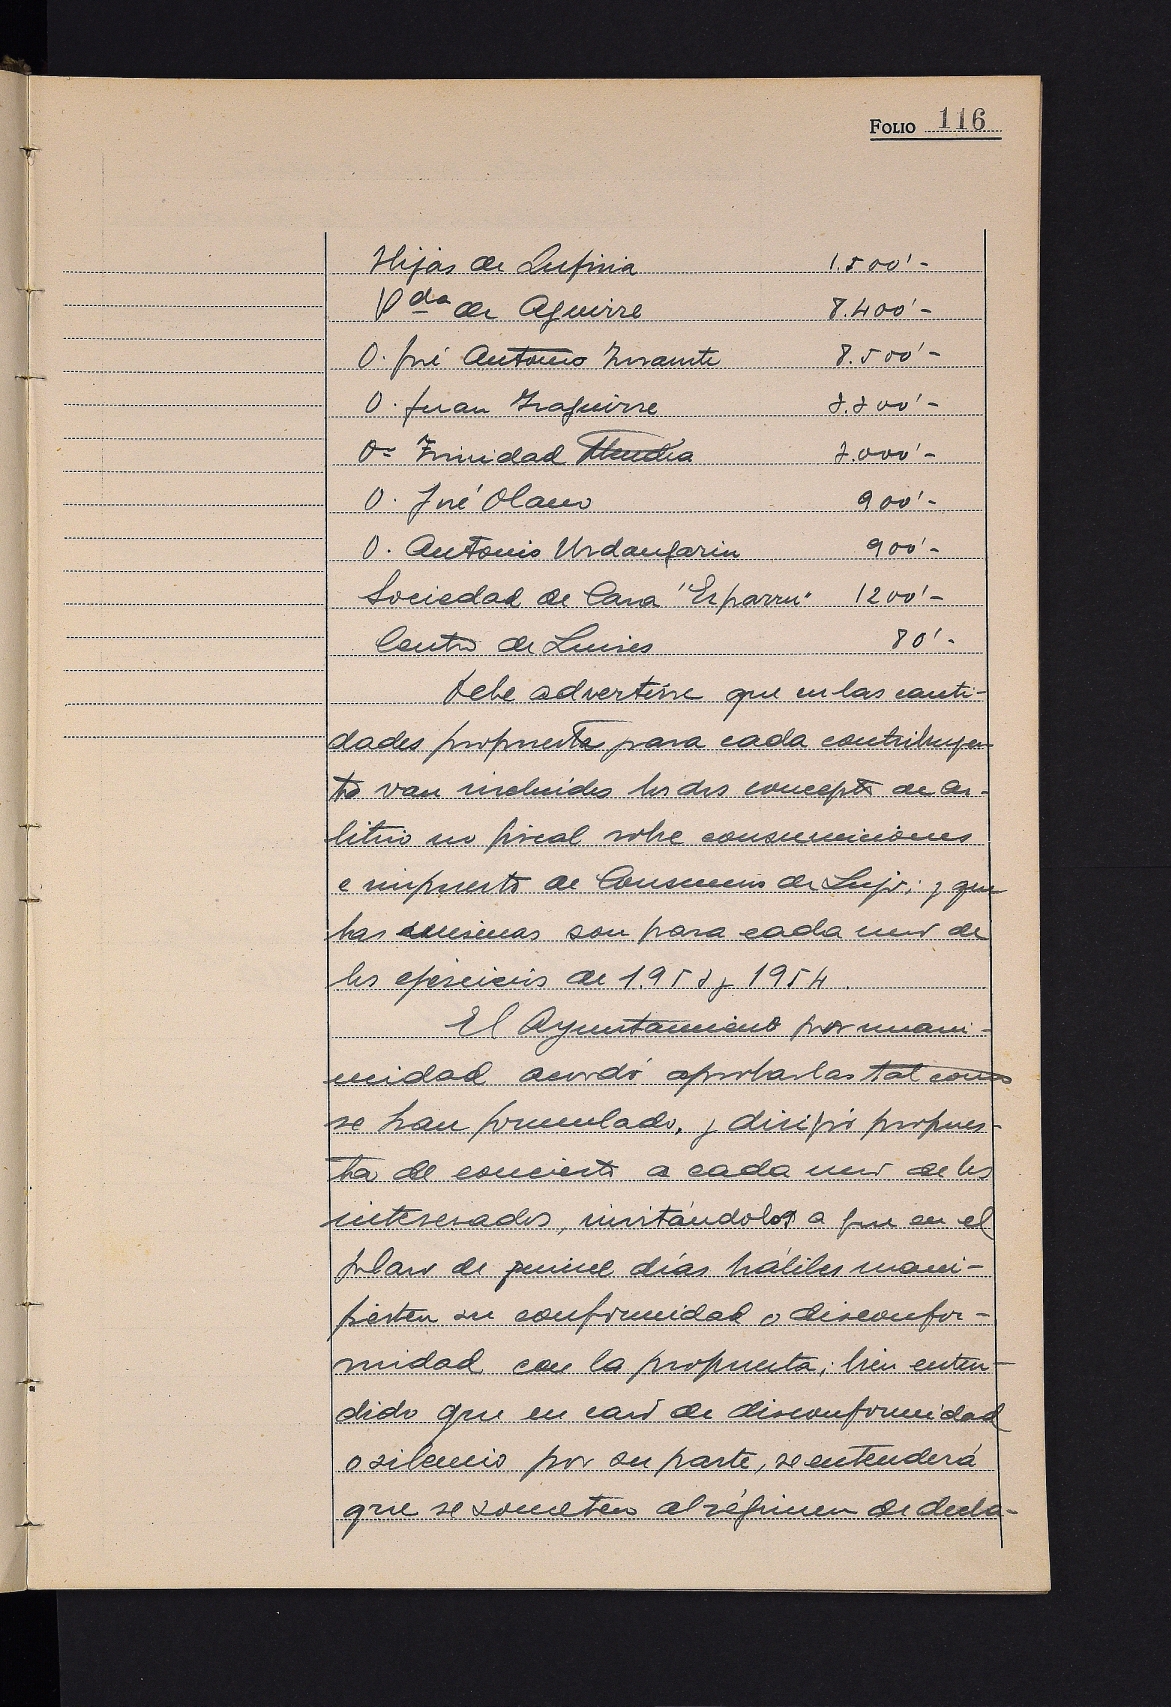 FOLIO 116
Hijas de Lufinia 1.500'-
Vda de Aguirre 8.400'-
D. José Antonio 8.500'-
D. Juan Izaguirre 3.300'-
Dª Trinidad 3.000'-
D. José Olano 900'-
D. Antonio Urdangarin 900'-
Sociedad de Caza "Esparru" 1200'-
Centro de Luises 80'-
Debe advertirse que en las canti-
dades propuestas para cada contribuyen-
te van incluidos los dos conceptos de ar-
bitrio no fiscal sobre consumiciones
e impuesto de Consumos de Lujo; y que
las mismas son para cada uno de
los ejercicios de 1.953 y 1954.
El Ayuntamiento por unani-
midad acordó aprobarlas tal como
se han formulado, y dirigir propues-
ta de concierto a cada uno de los
interesados, invitándolos a que en el
plazo de quince días hábiles mani-
fiesten su conformidad o disconfor-
midad con la propuesta; bien enten-
dido que en caso de disconformidad
o silencio por su parte, se entenderá
que se someten al régimen de decla-